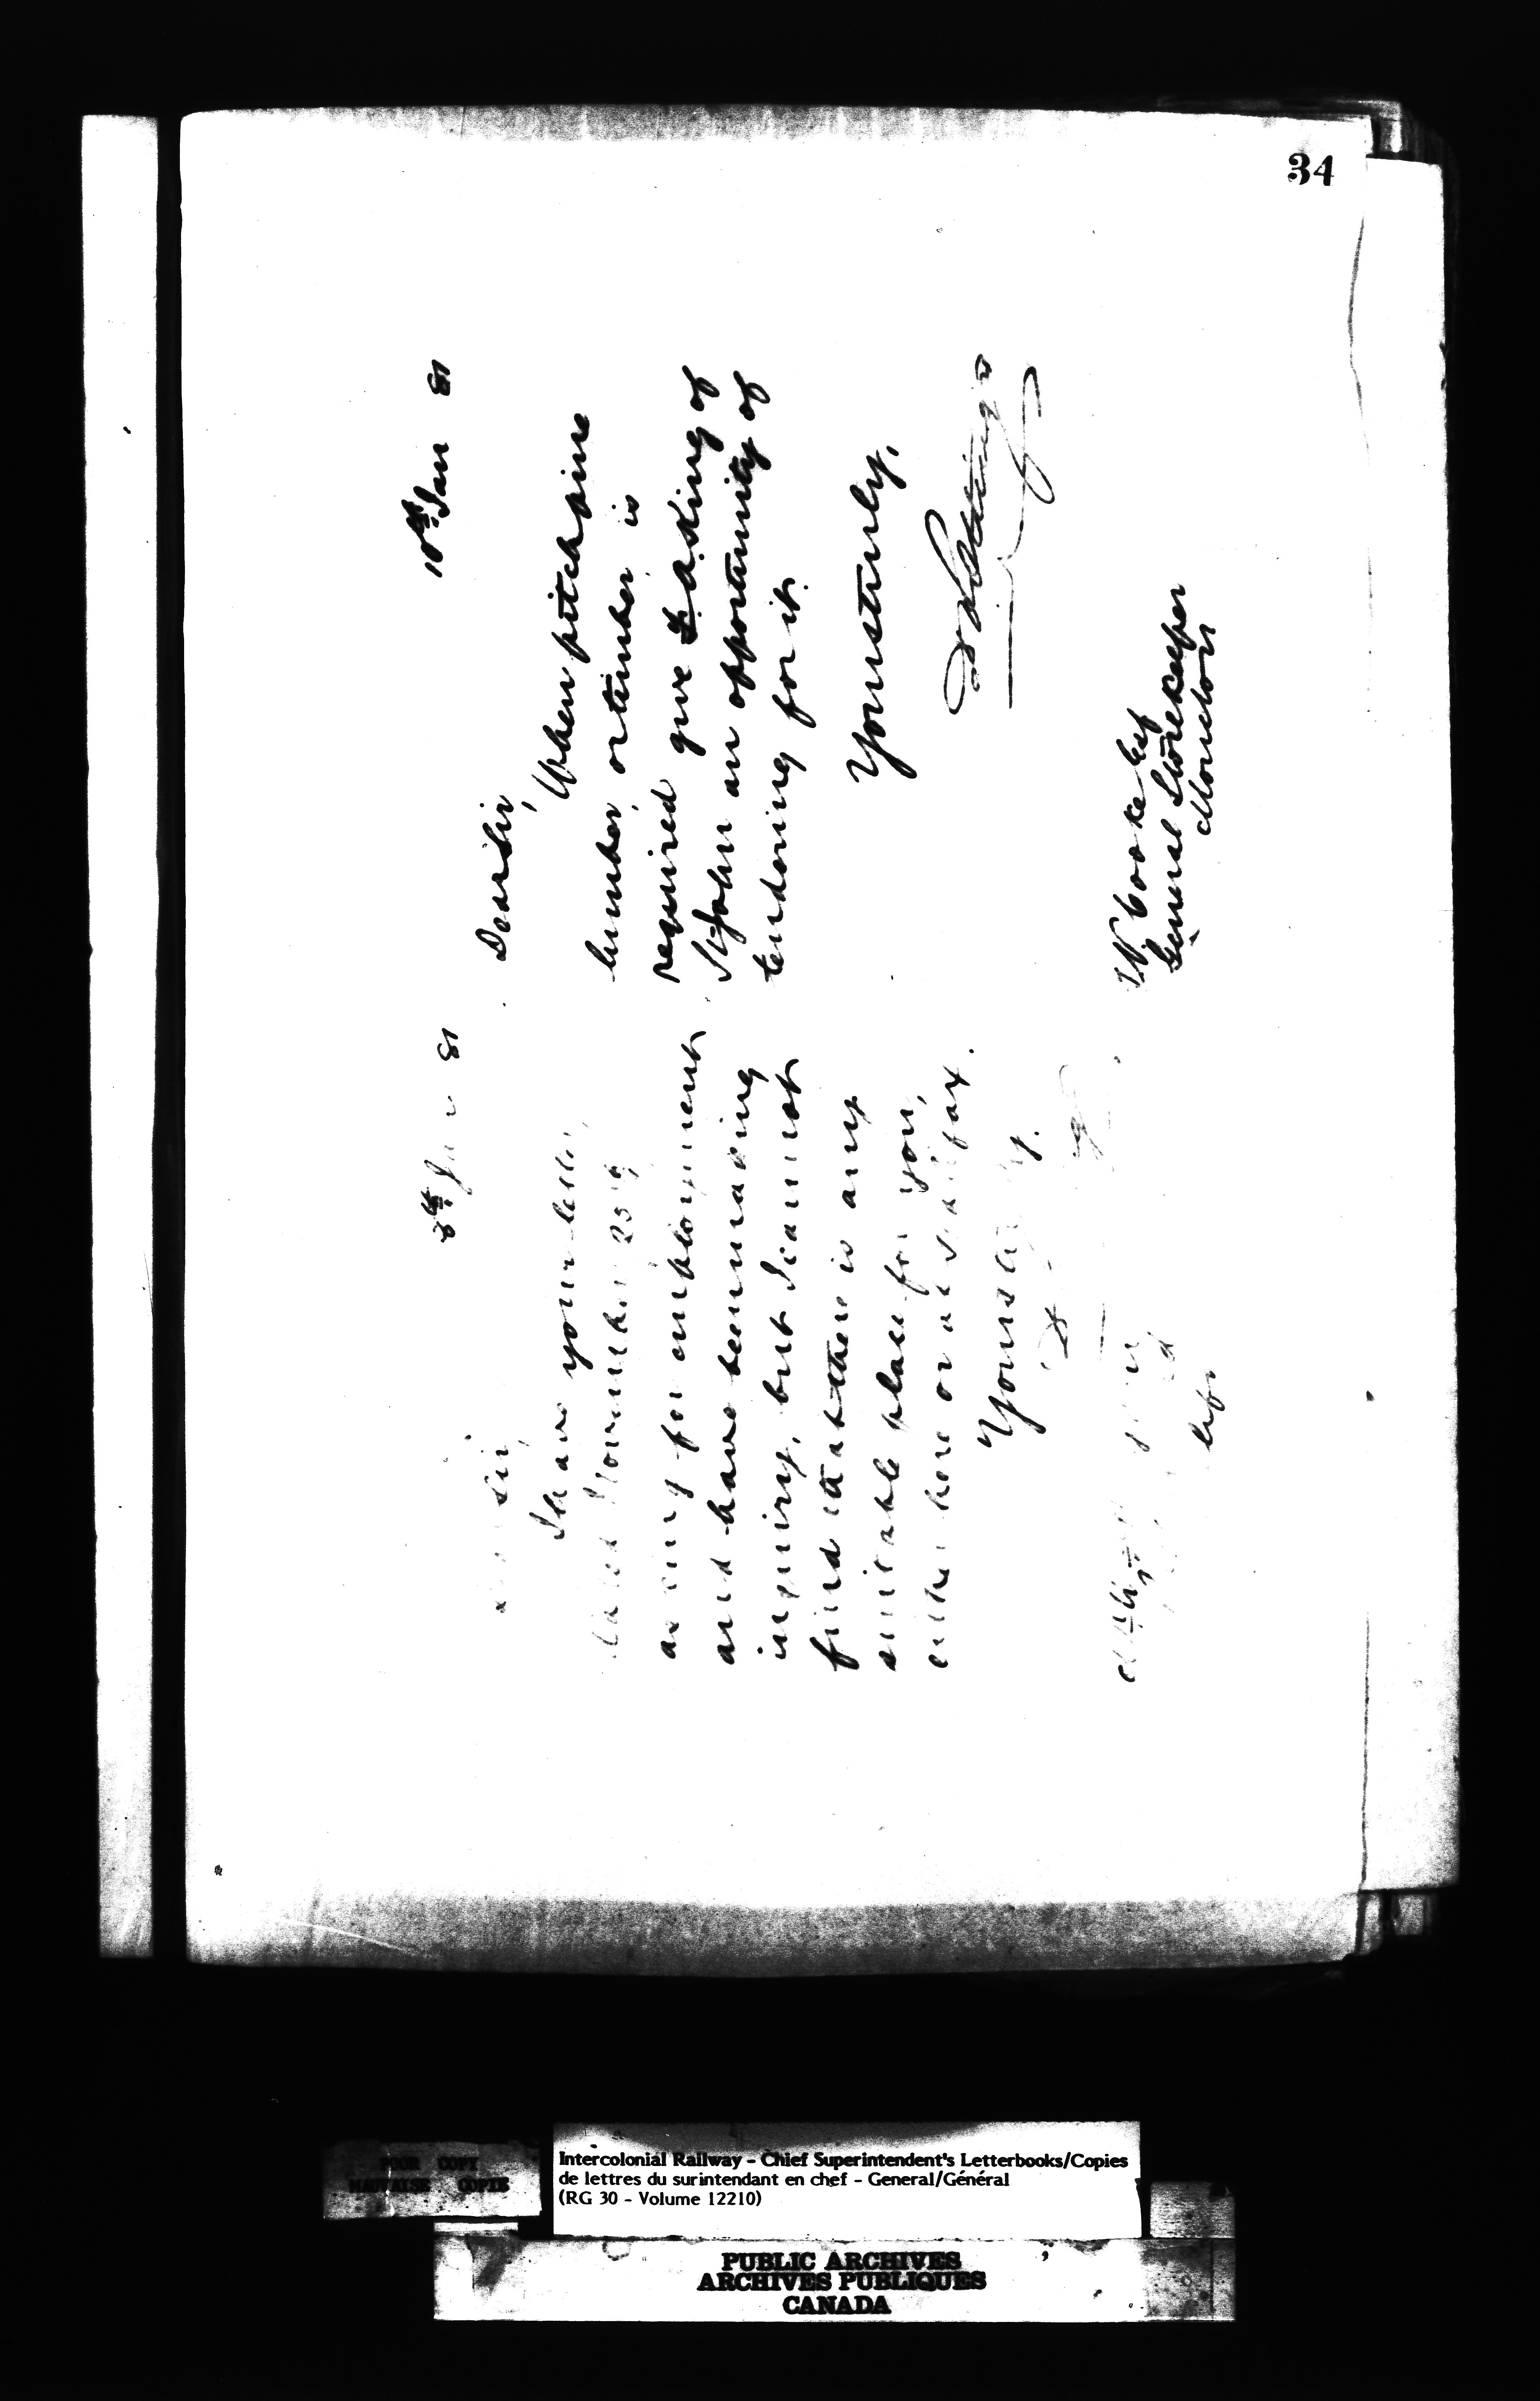 34
8th Jan 81
Sir,
I have your letter
dated November 25th,
asking for employment
and have been making
inquiry, but I cannot
find that there is any
suitable place for you,
either here or at Halifax.
Yours
10th Jan 81
Dear Sir,
When pitch pine
lumber, or timber, is
required give asking of
St John an opportunity of
tendering for it.
Yours truly,
D Pottinger
T. V. Cooke Esq
General Storekeeper
Moncton
POOR COPY
MAUVAISE COPIE
Intercolonial Railway - Chief Superintendent's Letterbooks/Copies
de lettres du surintendant en chef - General/Général
(RG 30 - Volume 12210)
PUBLIC ARCHIVES
ARCHIVES PUBLIQUES
CANADA